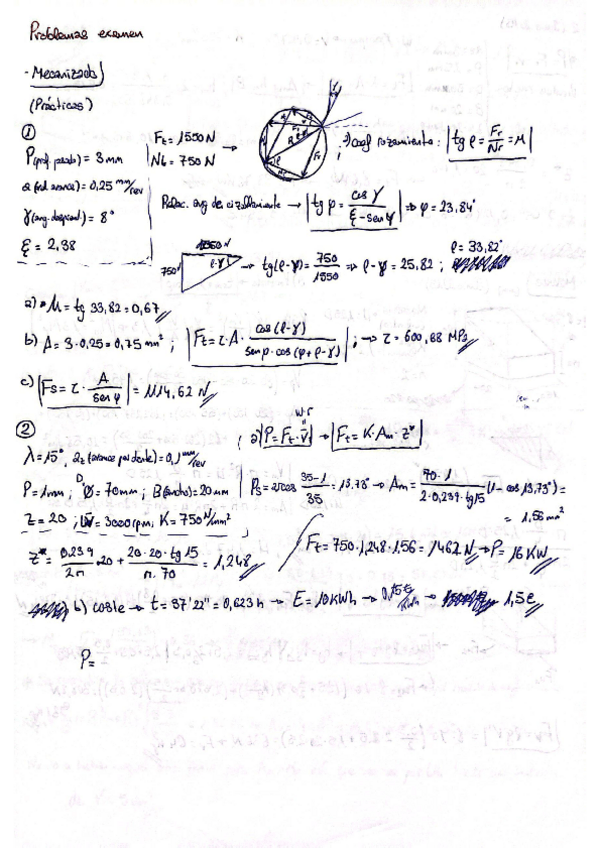 Problemas examen
- Mecanizado
(Prácticas)
① Ft = 1550 N
Nt = 750 N
P(prof. pasada) = 3 mm
a (vel. avance) = 0,25 mm/rev
γ (ang. desprend.) = 8°
ξ = 2,38
Coef rozamiento: tg ρ = Fr/Nr = μ
Relac. ang de cizallamiento → tg φ = cos γ / (ξ - sen γ) ⇒ φ = 23,84°
1550 N
750
ρ-γ
→ tg(ρ-γ) = 750/1550 ⇒ ρ-γ = 25,82 ; ρ = 33,82°
a) μ = tg 33,82 = 0,67
b) A = 3·0,25 = 0,75 mm² ; Ft = τ·A· cos(ρ-γ) / (sen φ·cos(φ+ρ-γ)) ; → τ = 600,88 MPa
c) Fs = τ· A/sen φ = 1114,62 N
②
λ = 15°, az (avance por diente) = 0,1 mm/rev
P = 1 mm ; D Ø = 70 mm ; B (ancho) = 20 mm
Z = 20 ; W = 3000 rpm ; K = 750 N/mm²
w·r
a) P = Ft·v → Ft = K·Am·z*
= 13,78° → Am = 70·1 / (2·0,239·tg15) (1 - cos 13,73°) =
= 1,56 mm²
z* = 0,239/2π ·20 + 20·20·tg15 / π·70 = 1,248
Ft = 750·1,248·1,56 = 1462 N → P = 16 KW
b) coste → t = 37'22'' = 0,623 h → E = 10 KWh → 0,15 €/KWh → 1,5 €
P =